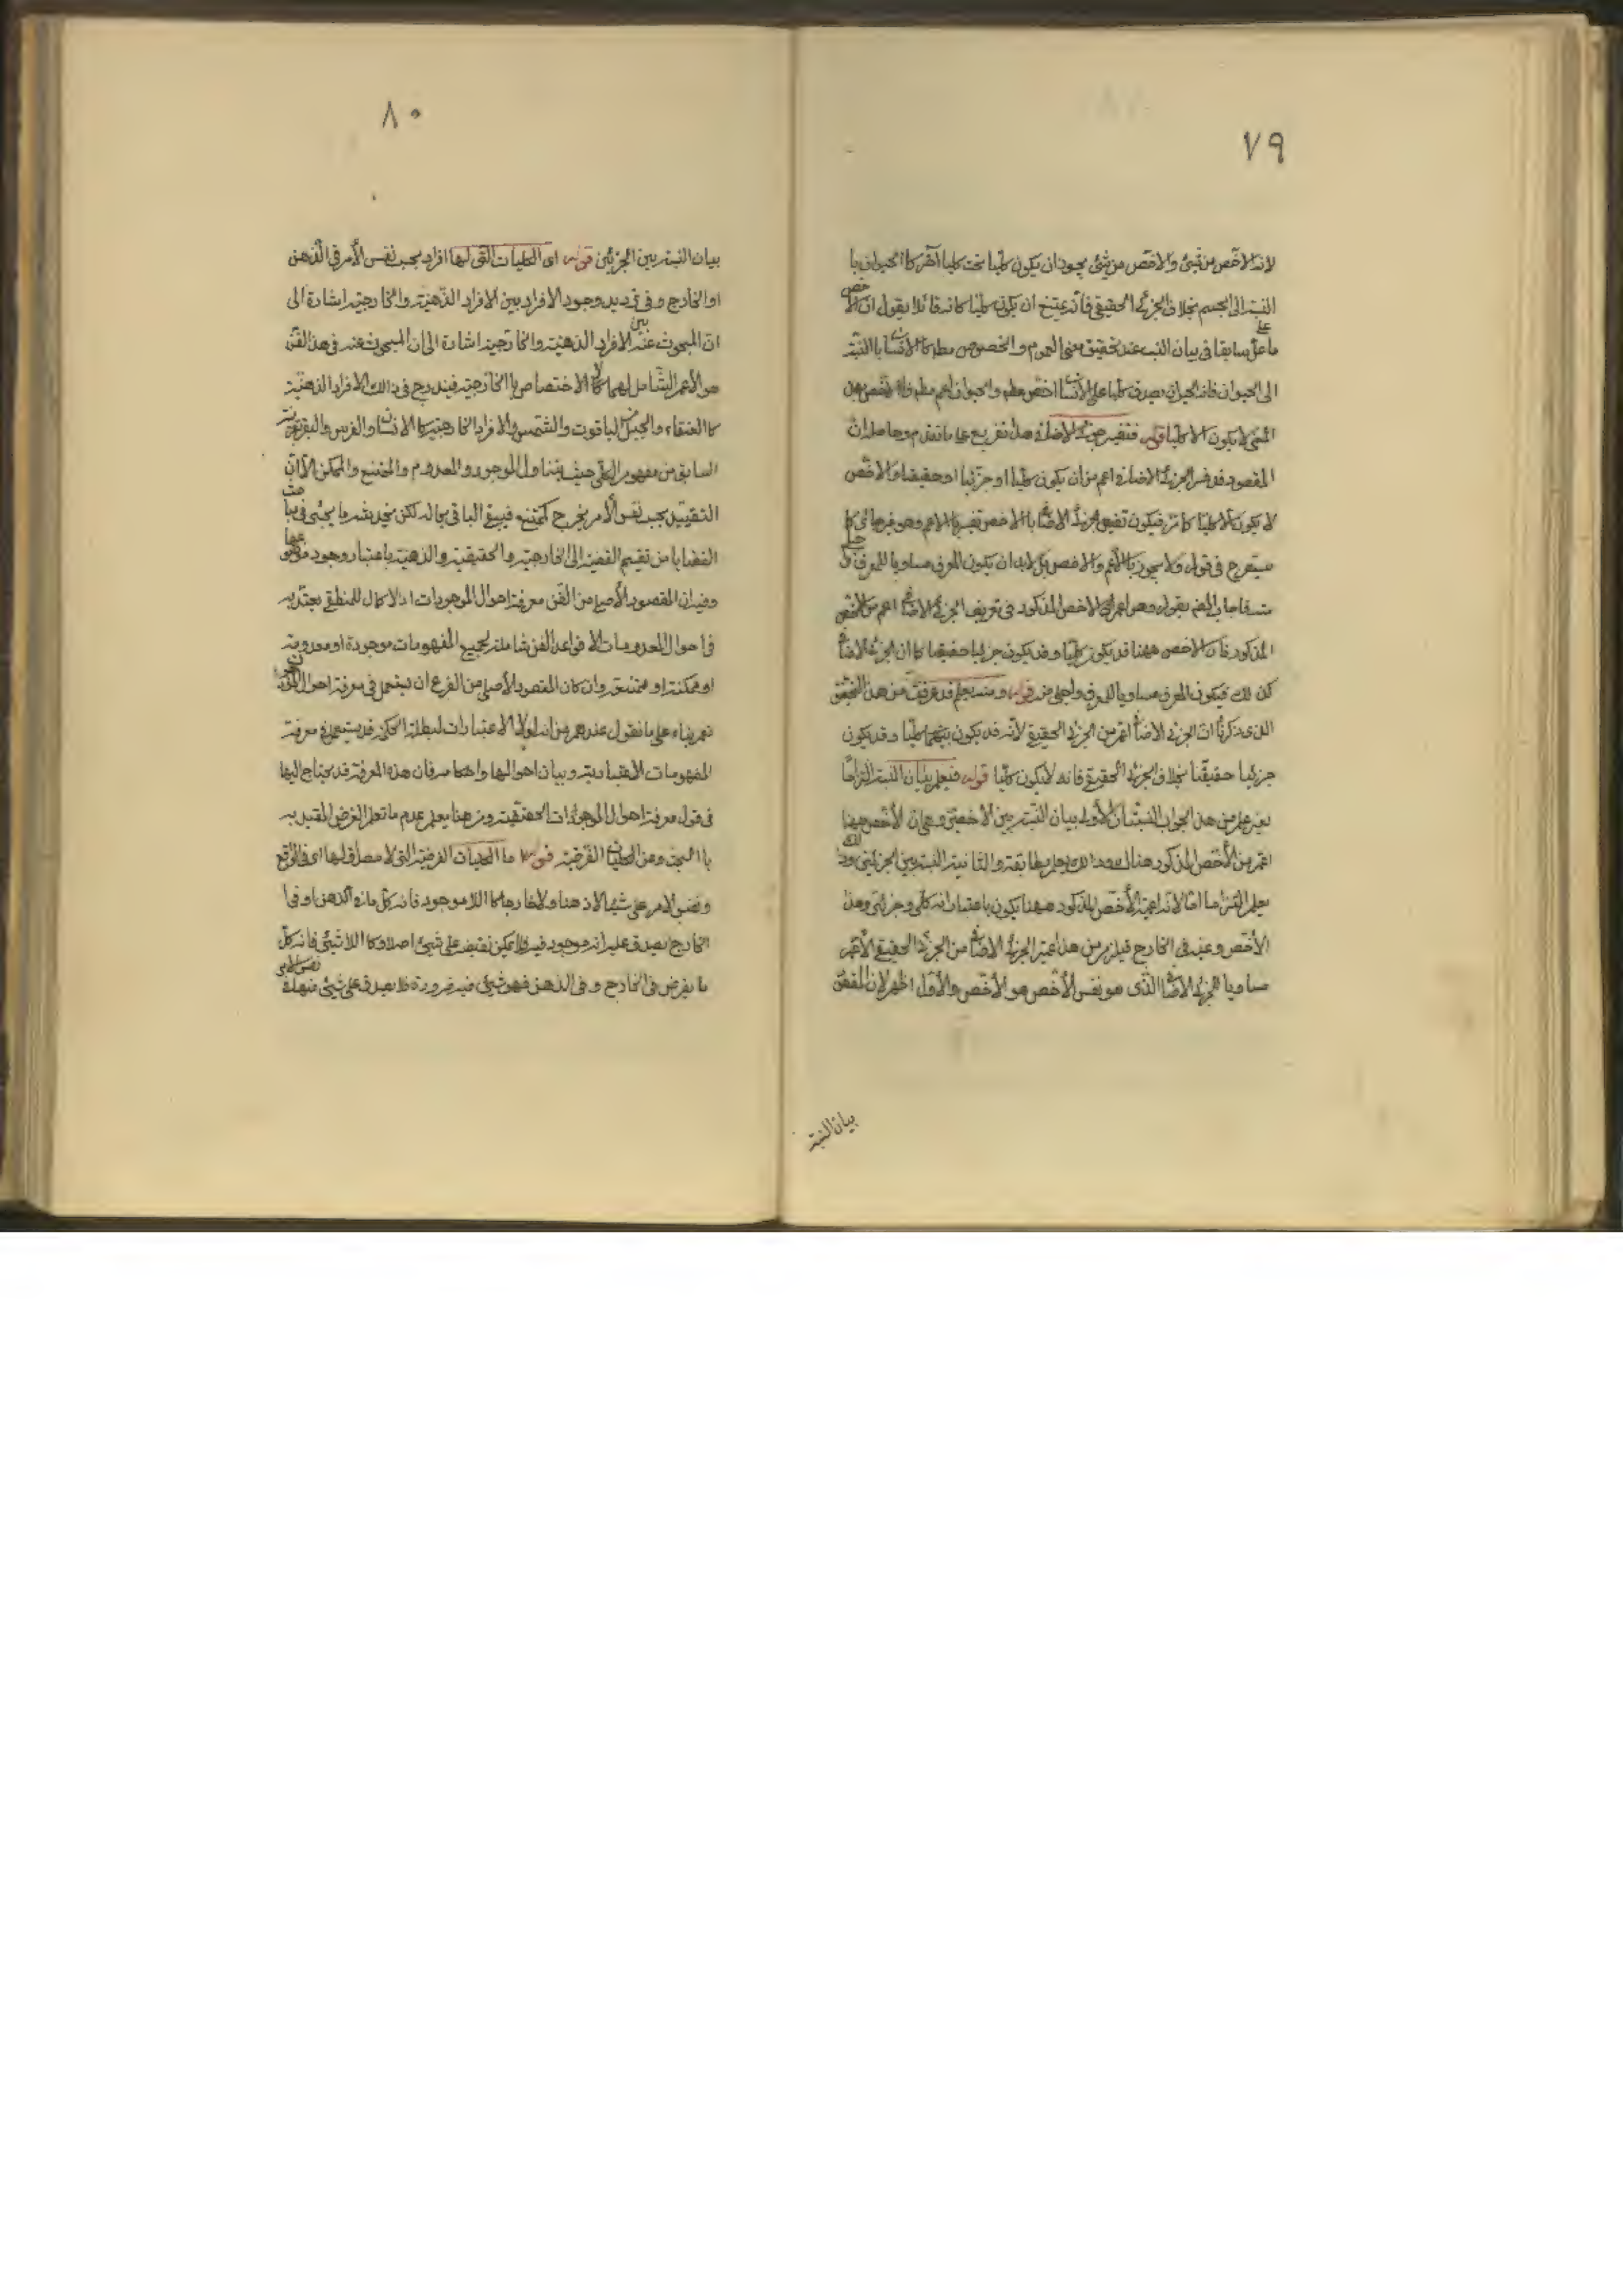 ٧٩
لانه الاخص من شئ والاخص من شئ يجوز ان يكون كليا تحت كليا آخر كا الحيوان با
النسبة الى الجسم بخلاف الجزئى الحقيقى فانه يمتنع ان يكون كليا كانه قائلا يقول ان الاخص
على ما علم سابقا فى بيان النسب عند تحقيق معنى العموم والخصوص مط كا الانسان با النسبة
الى الحيوان فانه الحيوان يصدق كليا على الانسان اخص مط والحيوان اعم مط
المعنى لا يكون الا كليا قوله فتفسير جزئى الاضافى هذا تفريع على ما تقدم وحاصله ان
المقصود قد فسر الجزئى الاضافى اعم من ان يكون كليا او جزئيا او حقيقيا والاخص
لا يكون الا كليا كا مر فيكون تفسير الجزئى الاضافى با الاخص تفسير با الاعم وهو غير جائز كا
سيصرح فى قوله ولا يجوز با الاعم والاخص بل لابد ان يكون المعرف مساويا للمعرف
فاجاب المص بقوله وهو اعم اى الاخص المذكور فى تعريف الجزئى الاضافى اعم من الاخص
المذكور فان الاخص ههنا قد يكون كليا وقد يكون جزئيا حقيقيا كا ان الجزئى الاضافى
كذلك فيكون المعرف مساويا للمعرف واجلى منه قوله ومنه يعلم قد عرفت من هذا التحقيق
الذى ذكرنا ان الجزئى الاضافى اعم من الجزئى الحقيقى لانه قد يكون كليا وقد يكون
جزئيا حقيقيا بخلاف الجزئى الحقيقى فانه لا يكون كليا قوله فيعلم بيان النسبة التزاما
يعنى علم من هذا الجواب النسبتان الاولى بيان النسبة بين الاخصين وهى ان الاخص ههنا
اعم من الاخص المذكور هنالك يعلم مطابقة والثانية النسبة بين الجزئيين
يعلم التزاما لانه اعمية الاخص المذكور ههنا يكون باعتبار انه كلى وجزئى وهذا
الاخص وعينه فى الخارج فيلزم من هذا اعمية الجزئى الاضافى من الجزئى الحقيقى الاعم
مساويا للجزئى الاضافى الذى هو نفس الاخص هو الاخص والاول اظهر لان المقص
بيان النسبة
٨٠
بيان النسبة بين الجزئين قوله اى الكليات التى لها افراد بحسب نفس الأمر فى الذهن
او الخارج وفى ترديد وجود الافراد بين الافراد الذهنية والخارجية اشارة الى
ان المبحوث عنه بين الافراد الذهنية والخارجية اشارة الى ان المبحوث عنه فى هذا الفن
هو الأعم الشامل لهما لا الاختصاص با الخارجية فيندرج فى ذالك الافراد الذهنية
كا العنقاء والجبل من الياقوت والشمس والافراد الخارجية كا الانسان والفرس والبقر
السابق من مفهوم الكلى حيث يتناول الموجود والمعدوم والممتنع والممكن الا ان
التقييد بحسب نفس الأمر يخرج الممتنع فيبقى الباقى بحاله لكن يجئى فى مباحث
القضايا من تقسيم القضية الى الخارجية والحقيقية والذهنية باعتبار وجود موضوعها
وفيه ان المقصود الأصلى من الفن معرفة احوال الموجودات اذ لا كمال للمنطقى يعتد به
فى احوال المعدومات الا قواعد الفن شاملة لجميع المفهومات موجودة او معدومة
او ممكنة او ممتنعة وان كان المقصود الأصلى من الفرع ان يستعمل فى معرفة احوال الموجودات
نعم بناء على ما تقول عندهم من انه لولا الاعتبارات لبطلت الحكمة قد يستعمل فى معرفة
المفهومات الاعتبارية وبيان احوالها واحكامه فان هذه المعرفة قد يحتاج اليها
فى قوله معرفة احوال الموجودات الحقيقية ومن هنا يعلم عدم ما تعلم الغرض المقيد به
با البحث عن الكليات الفرضية قوله اما الكليات الفرضية التى لا مصداق لها اى فى الواقع
ونفس الامر على شئ لا ذهنا ولا خارجا كا اللا موجود فانه كل ما فى الذهن او فى
الخارج يصدق عليه انه موجود فيه ولا يمكن نقيضه على شئ اصلا وكا اللا شئ فانه كل
ما يفرض فى الخارج وفى الذهن فهو شئ فيه ضرورة فلا يصدق على شئ منها